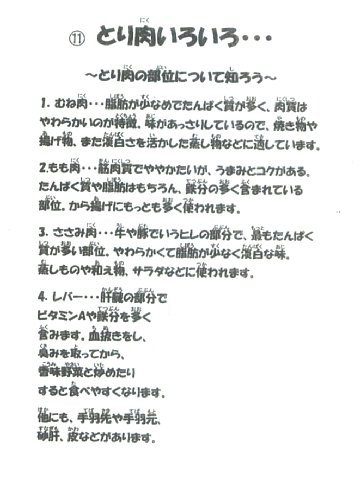 ⑪ とり肉いろいろ・・・
～とり肉の部位について知ろう～
1. むね肉・・・脂肪が少なめでたんぱく質が多く、肉質は
やわらかいのが特徴。味があっさりしているので、焼き物や
揚げ物、また淡白さを活かした蒸し物などに適しています。
2.もも肉・・・筋肉質でややかたいが、うまみとコクがある。
たんぱく質や脂肪はもちろん、鉄分の多く含まれている
部位。から揚げにもっとも多く使われます。
3. ささみ肉・・・牛や豚でいうヒレの部分で、最もたんぱく
質が多い部位。やわらかくて脂肪が少なく淡白な味。
蒸しものや和え物、サラダなどに使われます。
4. レバー・・・肝臓の部分で
ビタミンAや鉄分を多く
含みます。血抜きをし、
臭みを取ってから、
香味野菜と炒めたり
すると食べやすくなります。
他にも、手羽先や手羽元、
砂肝、皮などがあります。